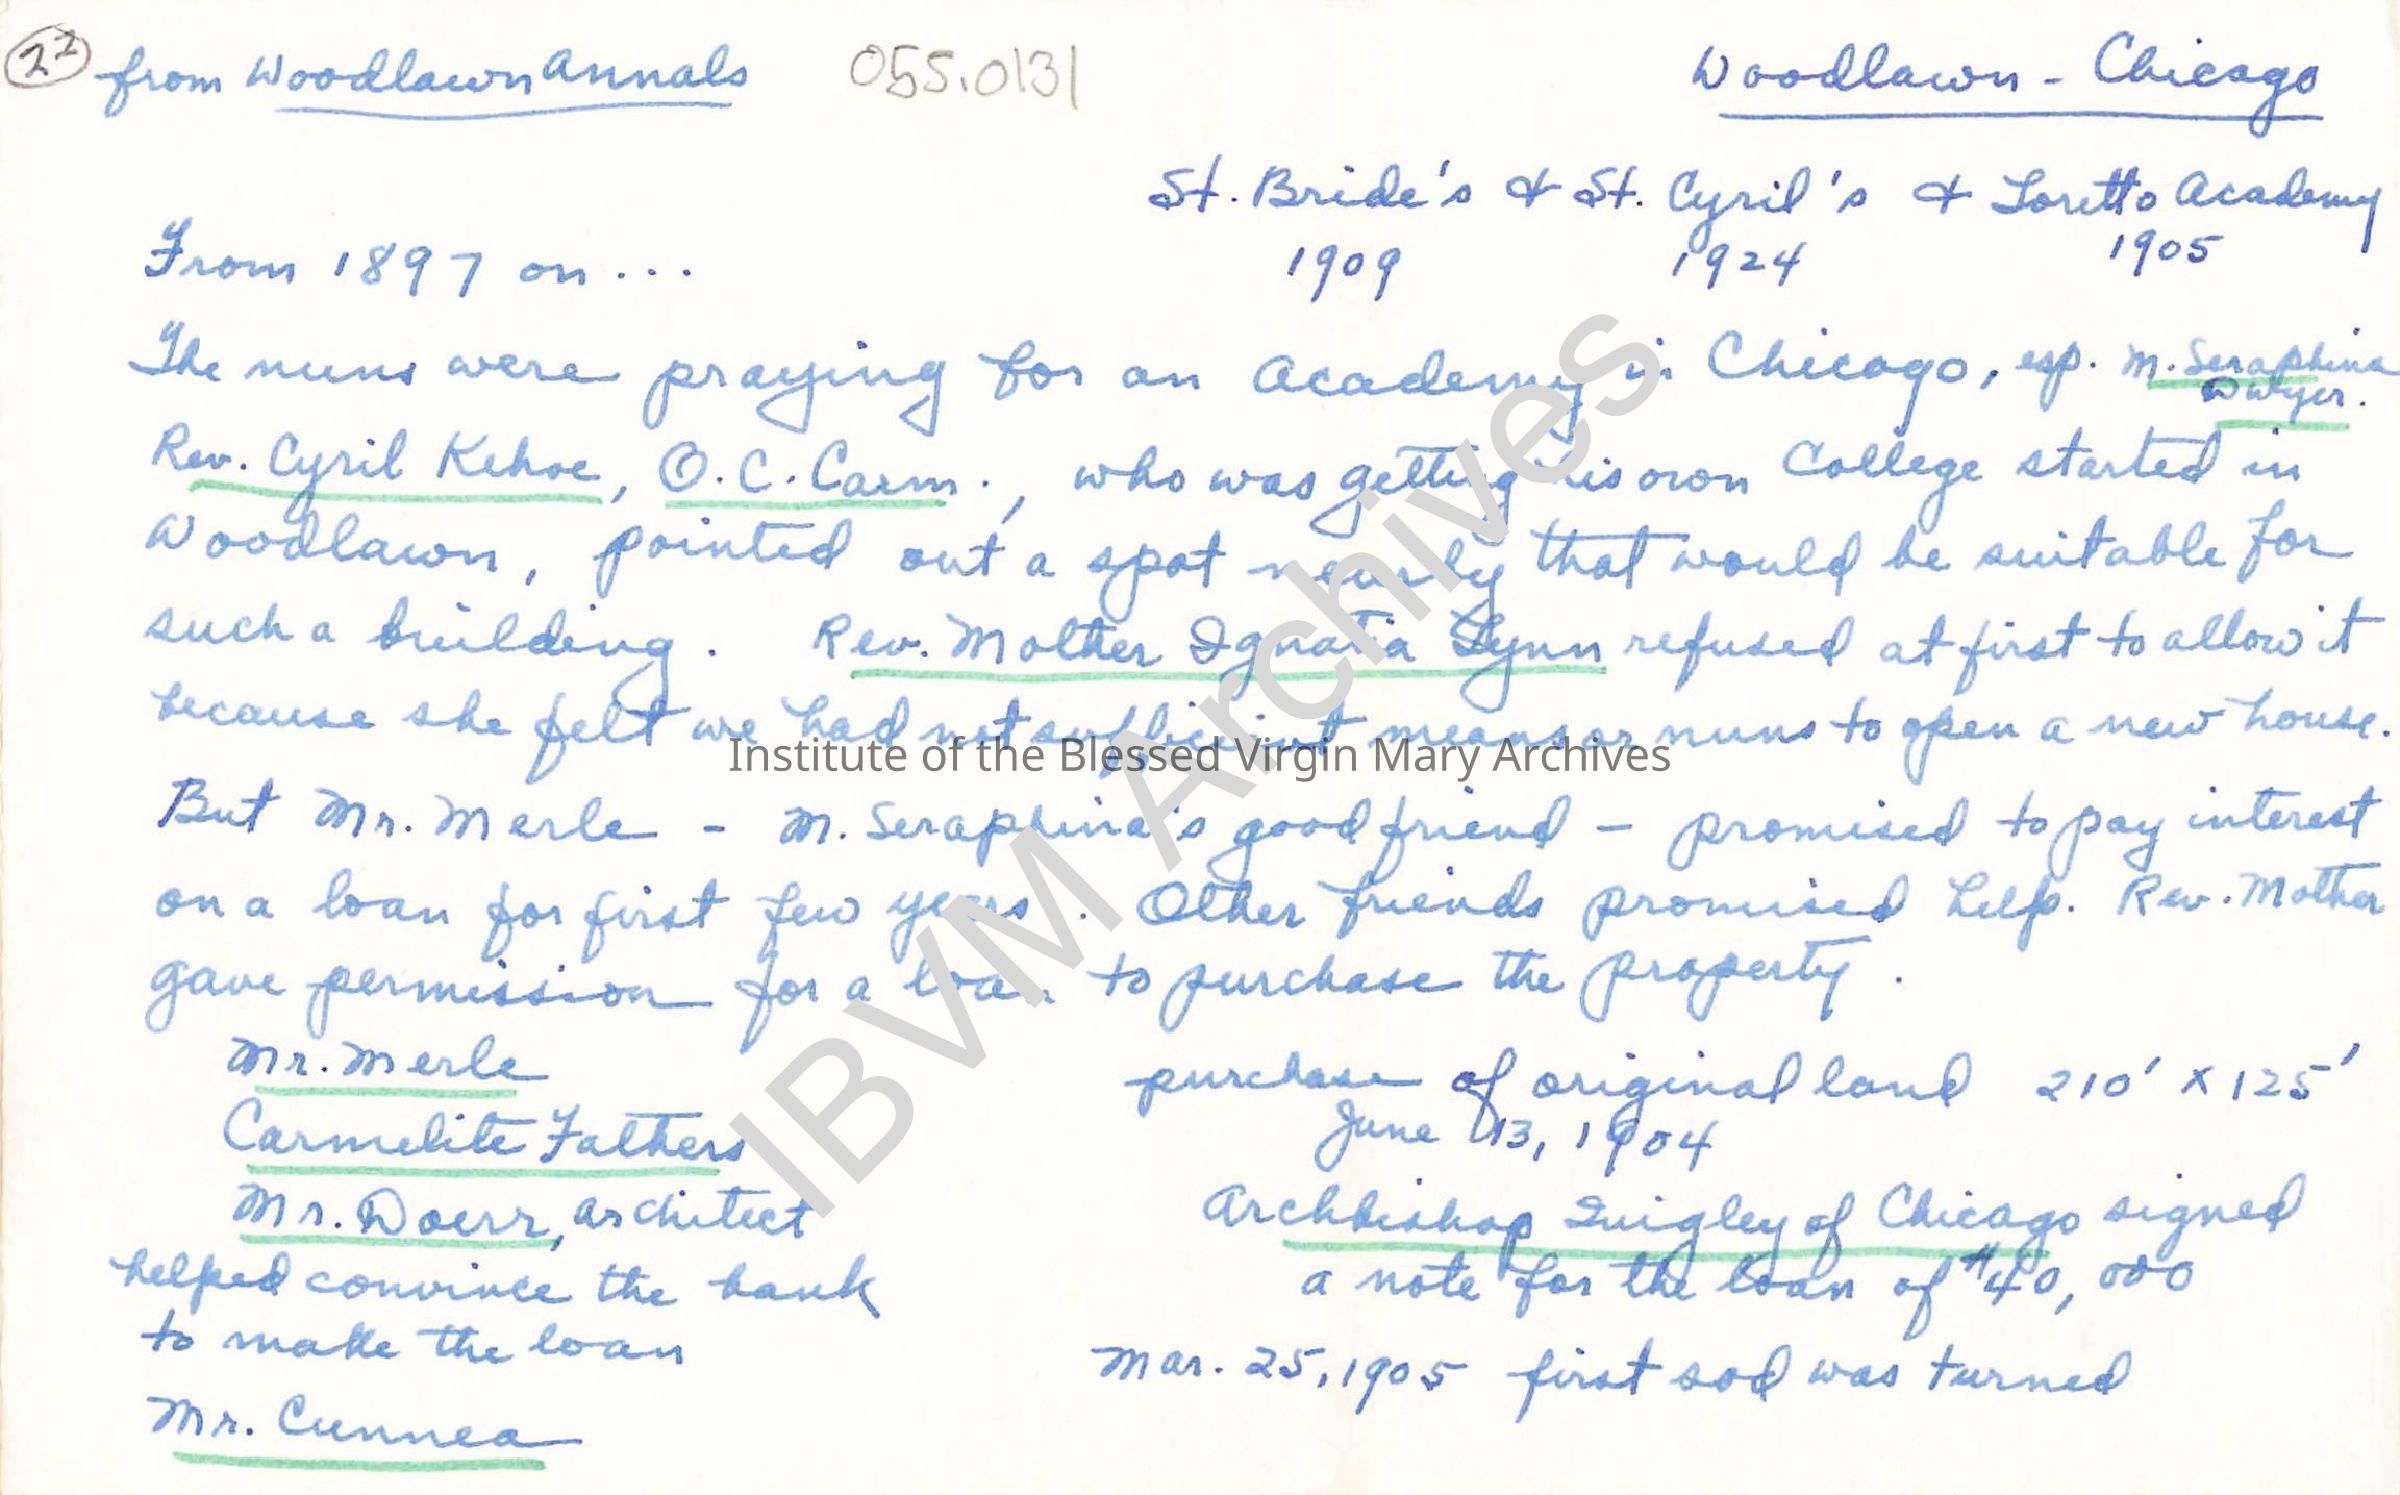 22 from Woodlawn Annals 055.0131 Woodlawn - Chicago
St. Bride's & St. Cyril's & Loretto Academy
1909 1924 1905
From 1897 on...
The nuns were praying for an Academy in Chicago, esp. M. Seraphina
Dwyer.
Rev. Cyril Kehoe, O.C.Carm., who was getting his own College started in
Woodlawn, pointed out a spot nearby that would be suitable for
such a building. Rev. Mother Ignatia Lynn refused at first to allow it
because she felt we had not sufficient means or nuns to open a new house.
But Mr. Merle - M. Seraphina's good friend - promised to pay interest
on a loan for first few years. Other friends promised help. Rev. Mother
gave permission for a loan to purchase the property.
Mr. Merle
Carmelite Fathers
Mr. Doerr, architect
helped convince the bank
to make the loan
Mr. Cunnea
purchase of original land 210' x 125'
June 13, 1904
Archbishop Quigley of Chicago signed
a note for the loan of $40,000
Mar. 25, 1905 first sod was turned
IBVM Archives
Institute of the Blessed Virgin Mary Archives